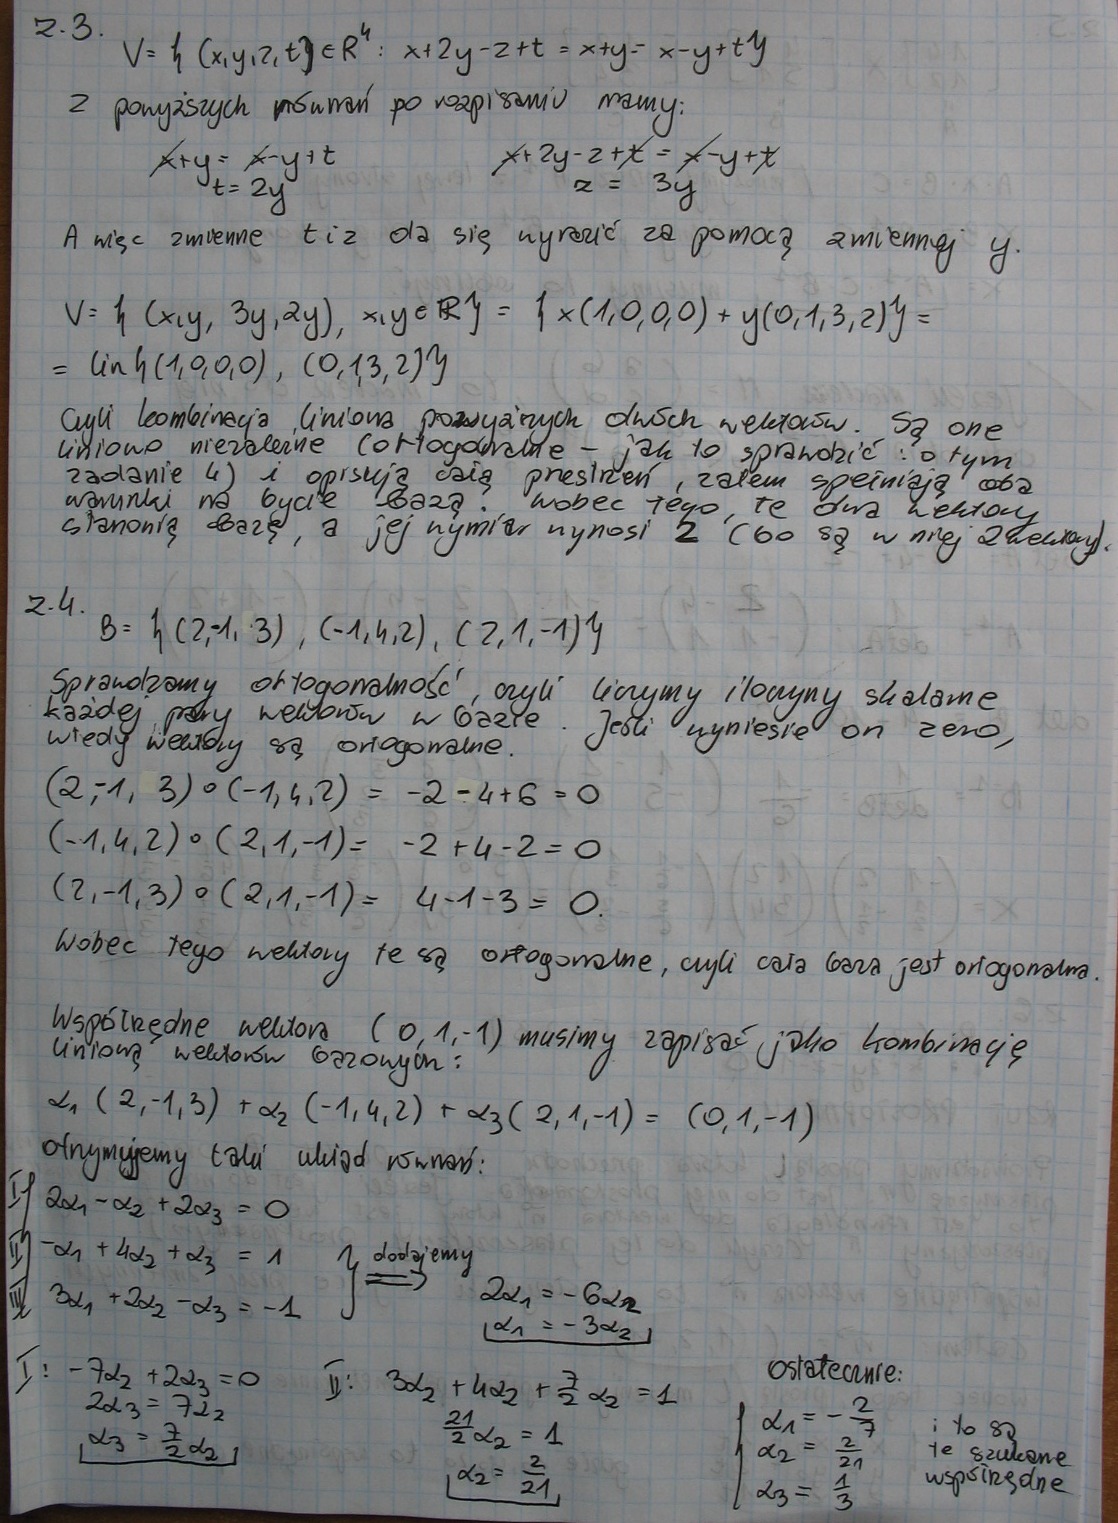 z.3.
V = { (x,y,z,t) ∈ R⁴ : x+2y-z+t = x+y = x-y+t }
Z powyższych równań po rozpisaniu mamy:
x+y = x-y+t    x+2y-z+t = x-y+t
t = 2y    z = 3y
A więc zmienne t i z da się wyrazić za pomocą zmiennej y.
V = { (x,y, 3y,2y), x,y ∈ R } = { x(1,0,0,0) + y(0,1,3,2) } =
= lin{ (1,0,0,0), (0,1,3,2) }
Czyli kombinacja liniowa powyższych dwóch wektorów. Są one
liniowo niezależne (ortogonalne – jak to sprawdzić : o tym
zadanie 4) i opisują całą przestrzeń, zatem spełniają oba
warunki na bycie bazą. Wobec tego, te dwa wektory
stanowią bazę, a jej wymiar wynosi 2 (bo są w niej 2 wektory).
z.4.
B = { (2,-1, 3), (-1,4,2), (2,1,-1) }
Sprawdzamy ortogonalność, czyli liczymy iloczyny skalarne
każdej pary wektorów w bazie. Jeśli wyniesie on zero,
wtedy wektory są ortogonalne.
(2,-1, 3) ∘ (-1,4,2) = -2 - 4 + 6 = 0
(-1,4,2) ∘ (2,1,-1) = -2 + 4 - 2 = 0
(2,-1,3) ∘ (2,1,-1) = 4-1-3 = 0.
Wobec tego wektory te są ortogonalne, czyli cała baza jest ortogonalna.
Współrzędne wektora (0,1,-1) musimy zapisać jako kombinację
liniową wektorów bazowych:
α₁ (2,-1,3) + α₂ (-1,4,2) + α₃ (2,1,-1) = (0,1,-1)
otrzymujemy taki układ równań:
I 2α₁ - α₂ + 2α₃ = 0
II -α₁ + 4α₂ + α₃ = 1 } dodajemy ⟹
III 3α₁ + 2α₂ - α₃ = -1    2α₁ = -6α₂
α₁ = -3α₂
I: -7α₂ + 2α₃ = 0    II: 3α₂ + 4α₂ + 7/2 α₂ = 1    Ostatecznie:
2α₃ = 7α₂    21/2 α₂ = 1    α₁ = -2/7    i to są
α₃ = 7/2 α₂    α₂ = 2/21    α₂ = 2/21    te szukane
α₃ = 1/3    współrzędne